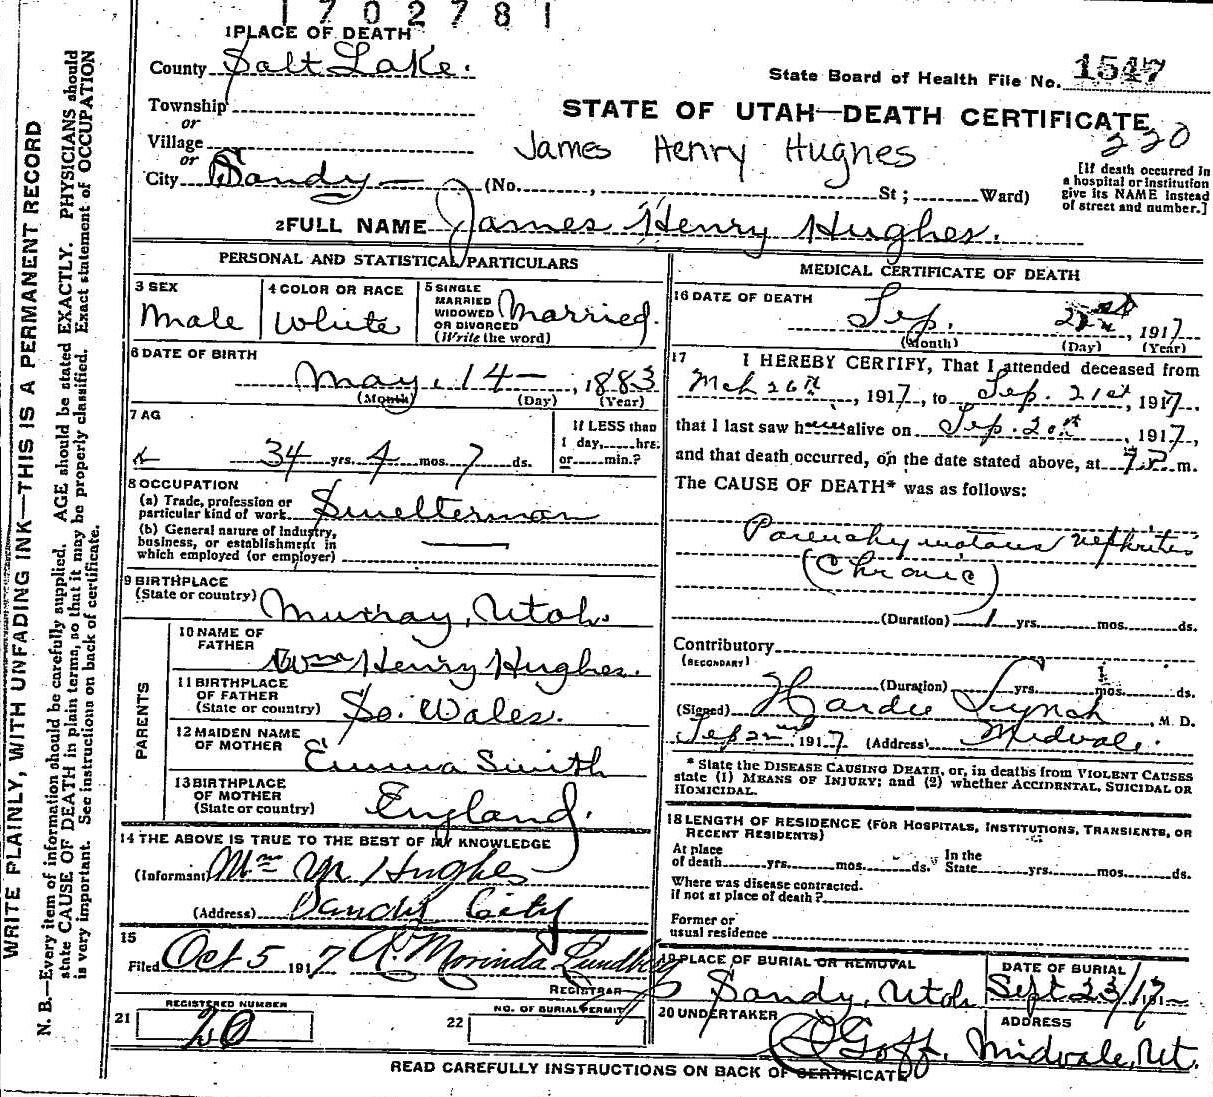 1702781
1 PLACE OF DEATH
County Salt Lake.
State Board of Health File No. 1547
Township
or
STATE OF UTAH—DEATH CERTIFICATE
Village
James Henry Hughes
220
or
City Sandy (No. , St ; Ward)
[If death occurred in a hospital or institution give its NAME instead of street and number.]
2 FULL NAME James Henry Hughes.
PERSONAL AND STATISTICAL PARTICULARS
3 SEX
Male
4 COLOR OR RACE
White
5 SINGLE
MARRIED
WIDOWED
OR DIVORCED
(Write the word)
Married.
6 DATE OF BIRTH
May. 14 — , 1883
(Month) (Day) (Year)
7 AG
34 yrs. 4 mos. 7 ds.
If LESS than
1 day, hrs.
or min.?
8 OCCUPATION
(a) Trade, profession or
particular kind of work Smelterman
(b) General nature of industry,
business, or establishment in
which employed (or employer)
9 BIRTHPLACE
(State or country) Murray, Utah.
PARENTS
10 NAME OF
FATHER Wm Henry Hughes.
11 BIRTHPLACE
OF FATHER
(State or country) So. Wales.
12 MAIDEN NAME
OF MOTHER Emma Smith
13 BIRTHPLACE
OF MOTHER
(State or country) England.
14 THE ABOVE IS TRUE TO THE BEST OF MY KNOWLEDGE
(Informant) Mrs M. Hughes
(Address) Sandy City
15
Filed Oct 5 1917 Morinda Lundberg
REGISTRAR
REGISTERED NUMBER
21 20
NO. OF BURIAL PERMIT
22
MEDICAL CERTIFICATE OF DEATH
16 DATE OF DEATH
Sep. , 1917
(Month) (Day) (Year)
17 I HEREBY CERTIFY, That I attended deceased from
Mch 26th , 1917, to Sep. 21st , 1917.
that I last saw h alive on Sep. 20th , 1917,
and that death occurred, on the date stated above, at m.
The CAUSE OF DEATH* was as follows:
Parenchymatous Nephritis
(Chronic)
(Duration) 1 yrs. mos. ds.
Contributory
(SECONDARY)
(Duration) yrs. mos. ds.
(Signed) Hardie Lynch , M. D.
Sep 22nd , 1917 (Address) Midvale.
* State the DISEASE CAUSING DEATH, or, in deaths from VIOLENT CAUSES
state (1) MEANS OF INJURY; and (2) whether ACCIDENTAL, SUICIDAL OR
HOMICIDAL.
18 LENGTH OF RESIDENCE (FOR HOSPITALS, INSTITUTIONS, TRANSIENTS, OR
RECENT RESIDENTS)
At place
of death yrs. mos. ds.
In the
State yrs. mos. ds.
Where was disease contracted.
if not at place of death?
Former or
usual residence
19 PLACE OF BURIAL OR REMOVAL
Sandy, Utah
DATE OF BURIAL
Sept 23/17 191
20 UNDERTAKER
Goff.
ADDRESS
Midvale, Ut.
READ CAREFULLY INSTRUCTIONS ON BACK OF CERTIFICATE
WRITE PLAINLY, WITH UNFADING INK—THIS IS A PERMANENT RECORD
N. B.—Every item of information should be carefully supplied. AGE should be stated EXACTLY. PHYSICIANS should
state CAUSE OF DEATH in plain terms, so that it may be properly classified. Exact statement of OCCUPATION
is very important. See instructions on back of certificate.